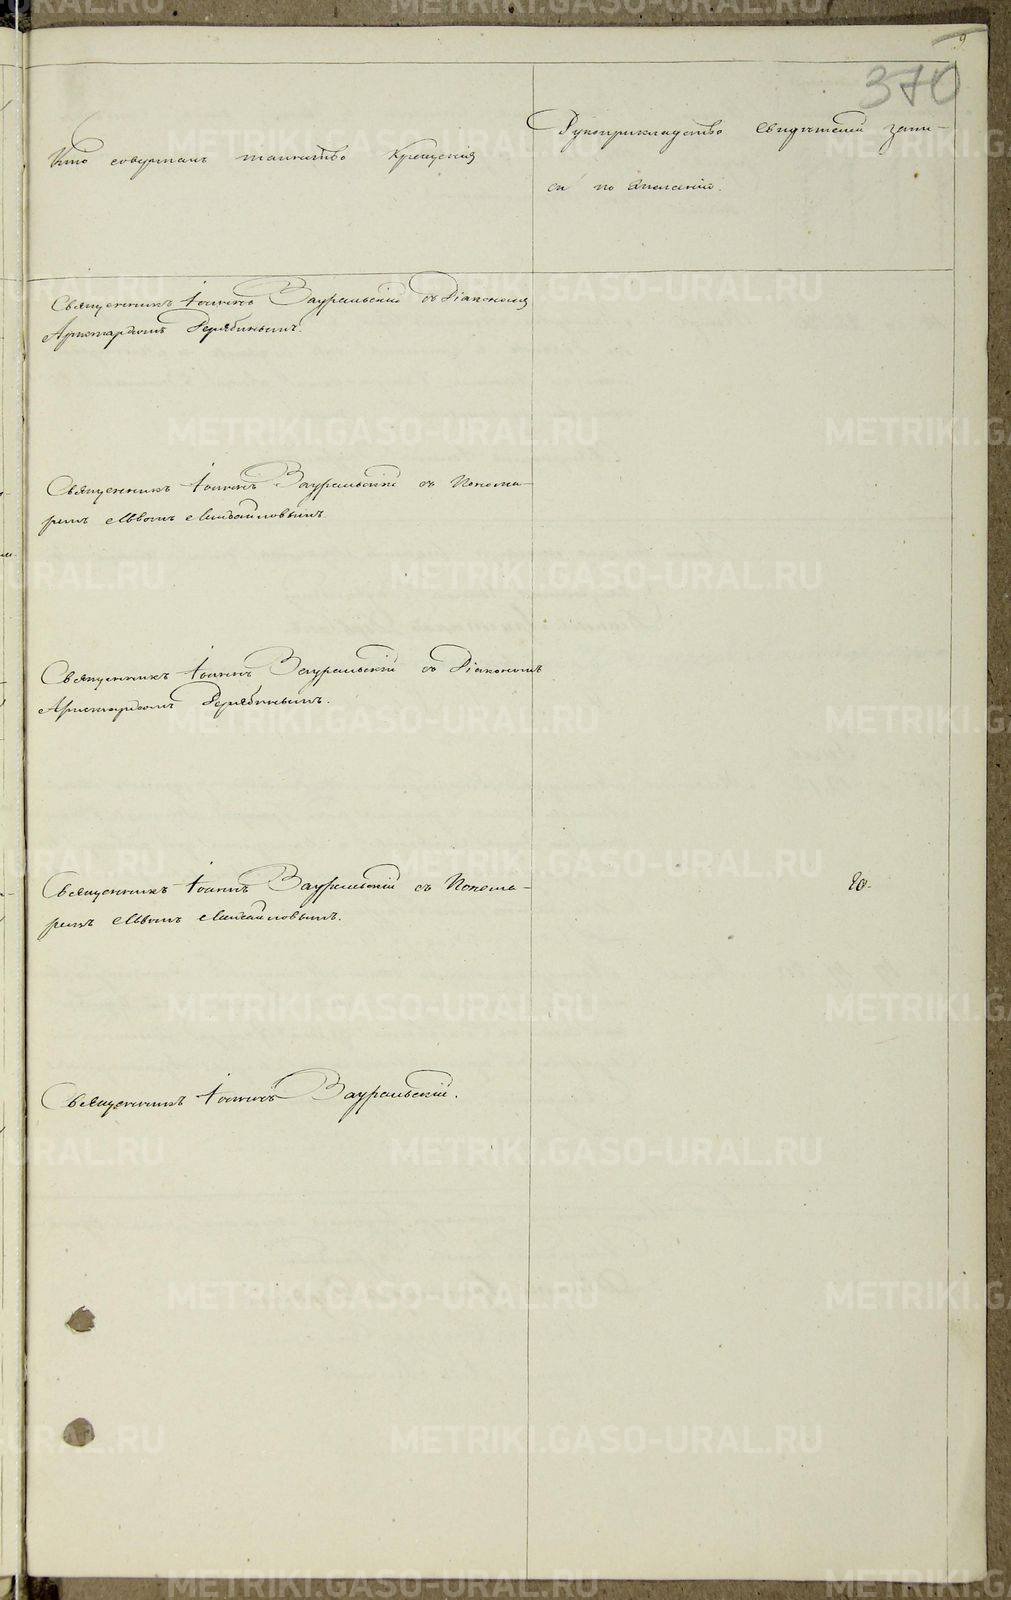 9
370
Кто совершалъ таинство Крещенія
Рукоприкладство свидѣтелей запи-
си по желанію.
Священникъ Іоаннъ Зауральскій съ Діакономъ
Аристархомъ Дерябинымъ.
Священникъ Іоаннъ Зауральскій съ Понома-
ремъ Львомъ Михайловымъ.
Священникъ Іоаннъ Зауральскій съ Діакономъ
Аристархомъ Дерябинымъ.
Священникъ Іоаннъ Зауральскій съ Понома-
ремъ Львомъ Михайловымъ.
Священникъ Іоаннъ Зауральскій.
METRIKI.GASO-URAL.RU